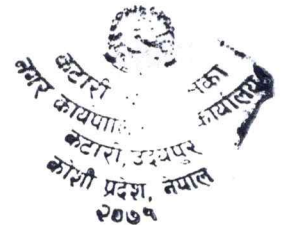 कटारी
नगर कार्यपा कार्यालय
कटारी, उदयपुर
कोशी प्रदेश, नेपाल
२०७१